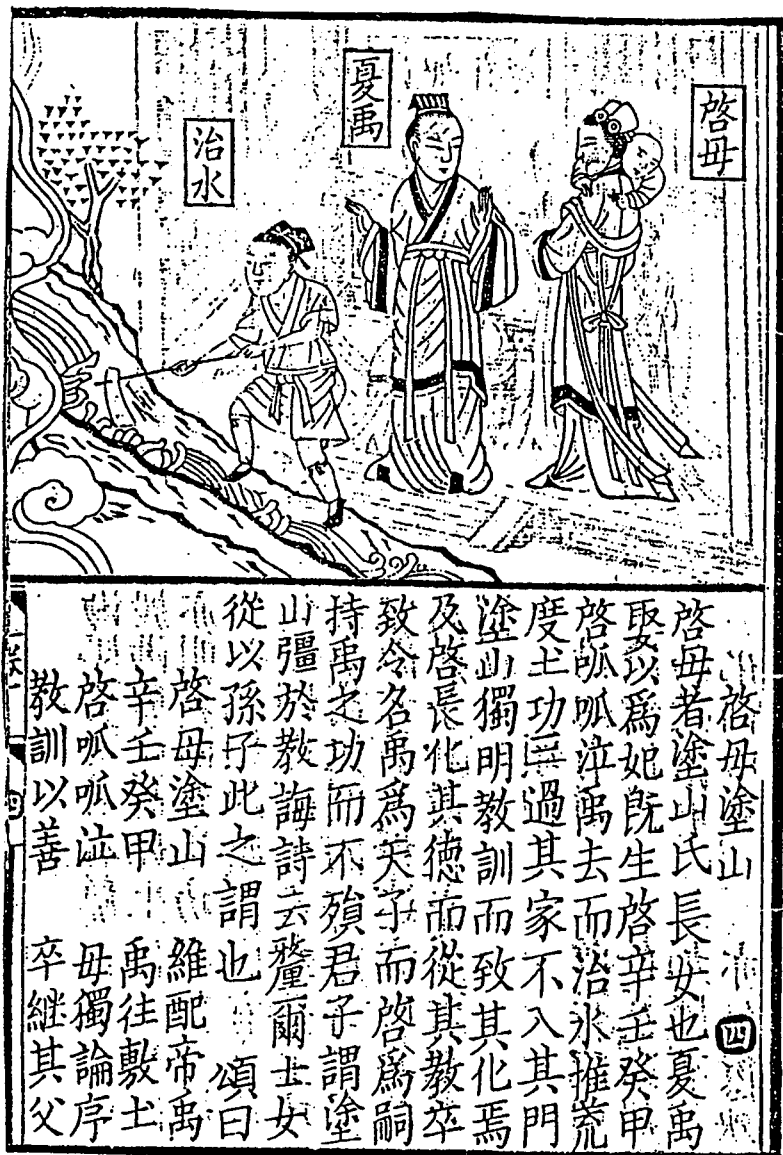 啓母
夏禹
治水
啓母塗山 四
啓母者塗山氏長女也夏禹
娶以爲妃旣生啓辛壬癸甲
啓呱呱泣禹去而治水惟荒
度土功三過其家不入其門
塗山獨明教訓而致其化焉
及啓長化其德而從其教卒
致令名禹爲天子而啓爲嗣
持禹之功而不殞君子謂塗
山彊於教誨詩云釐爾士女
從以孫子此之謂也 頌曰
啓母塗山 維配帝禹
辛壬癸甲 禹往敷土
啓呱呱泣 母獨論序
教訓以善 卒継其父
四